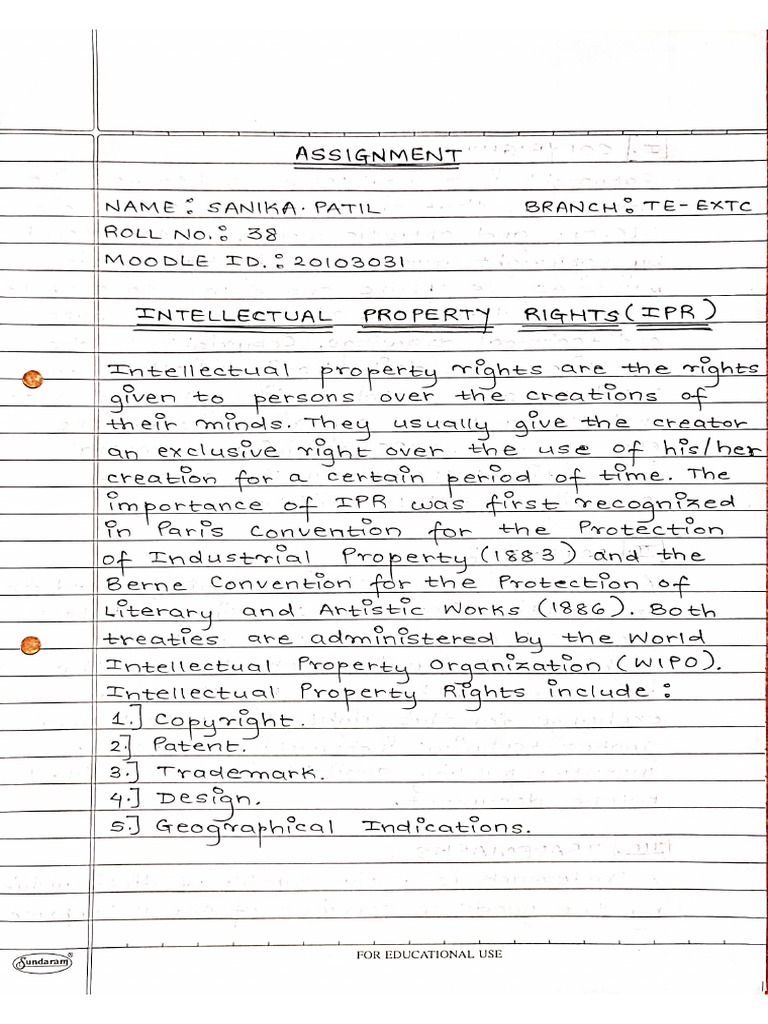 ASSIGNMENT
NAME: SANIKA. PATIL BRANCH: TE-EXTC
ROLL NO.: 38
MOODLE ID.: 20103031
INTELLECTUAL PROPERTY RIGHTS (IPR)
Intellectual property rights are the rights
given to persons over the creations of
their minds. They usually give the creator
an exclusive right over the use of his/her
creation for a certain period of time. The
importance of IPR was first recognized
in Paris Convention for the Protection
of Industrial Property (1883) and the
Berne Convention for the Protection of
Literary and Artistic Works (1886). Both
treaties are administered by the World
Intellectual Property Organization (WIPO).
Intellectual Property Rights include:
1.] Copyright.
2.] Patent.
3.] Trademark.
4.] Design.
5.] Geographical Indications.
Sundaram®
FOR EDUCATIONAL USE